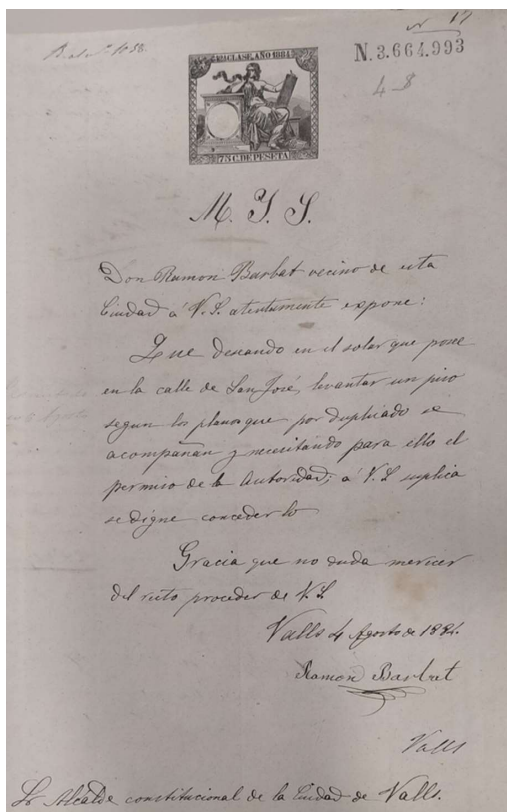 Nº 17
N. 3.664.993
12ª CLASE. AÑO 1884
75 C. DE PESETA
M. I. S.
Don Ramon Barbat vecino de esta
Ciudad á V.S. atentamente expone:
Que deseando en el solar que posee
en la calle de San José, levantar un piso
segun los planos que por duplicado se
acompañan y necesitando para ello el
permiso de la Autoridad; á V.S. suplica
se digne conceder lo
Gracia que no duda merecer
del recto proceder de V.S.
Valls 4 Agosto de 1884.
Ramon Barbat
Valls
Sr. Alcalde constitucional de la Ciudad de Valls.